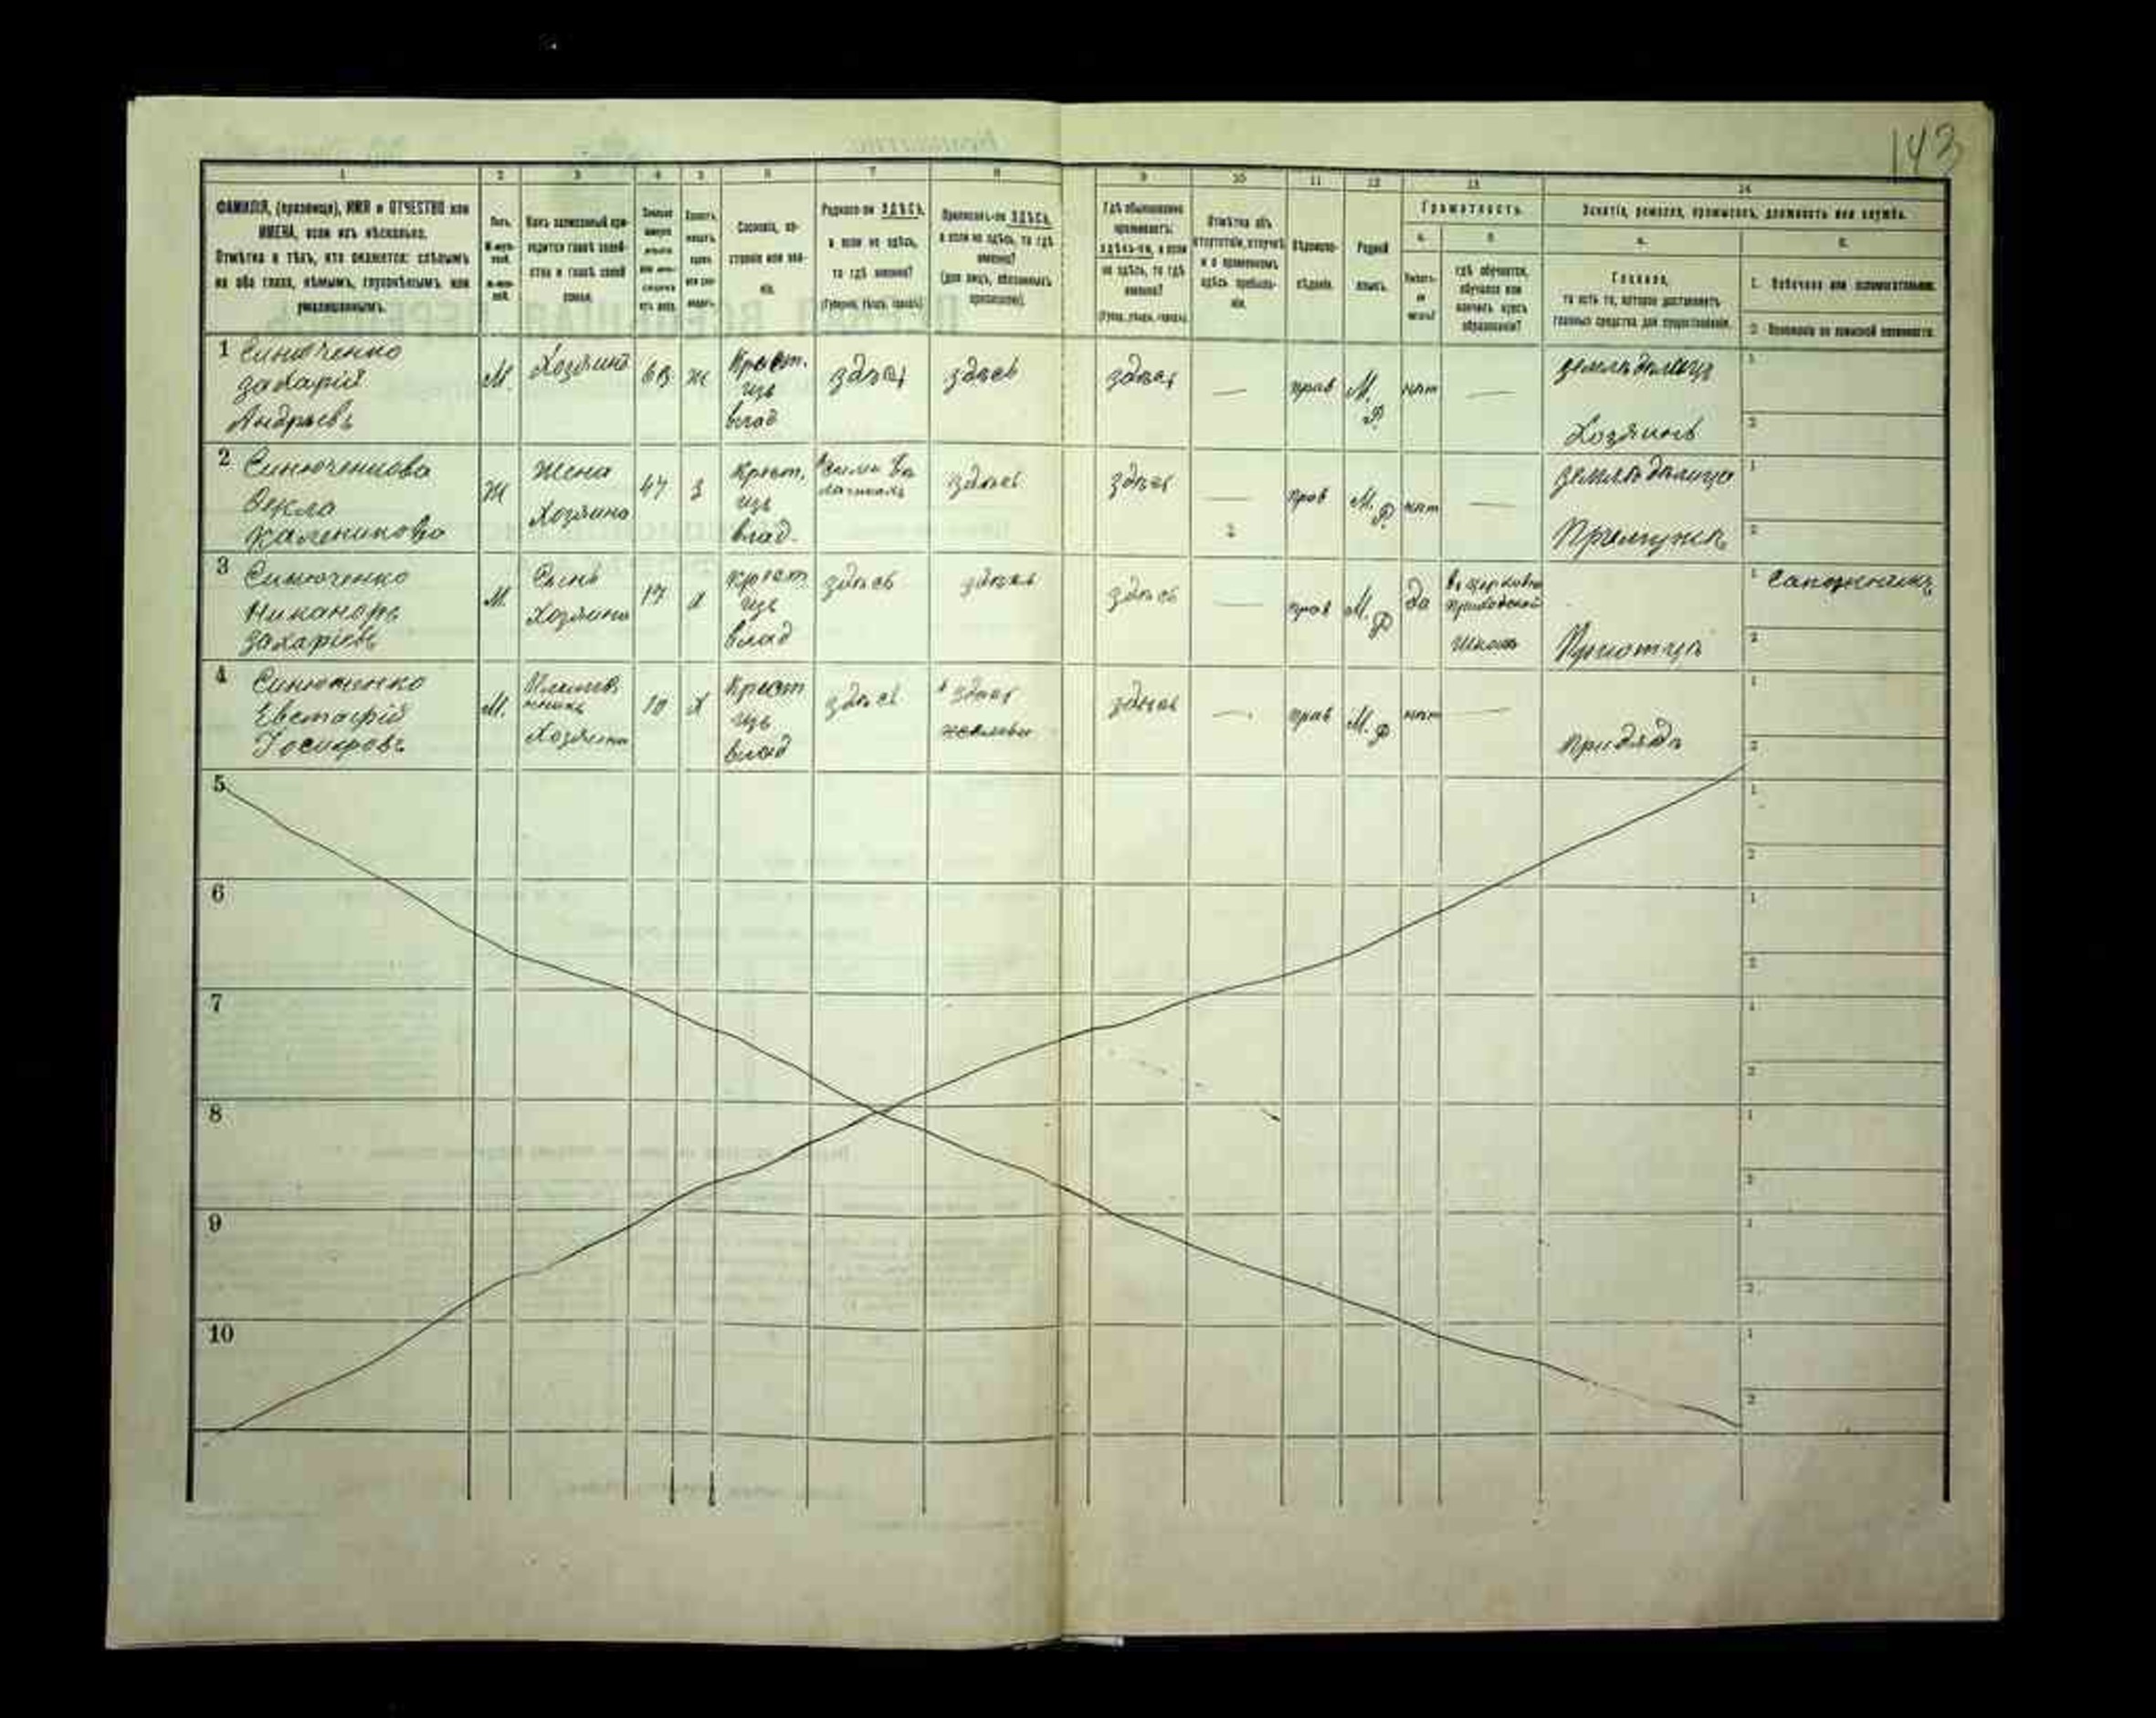 143
1 2 3 4 5 6 7 8 9 10 11 12 13 14
ФАМИЛІЯ, (прозвище), ИМЯ и ОТЧЕСТВО или
ИМЕНА, если ихъ нѣсколько.
Отмѣтка о тѣхъ, кто окажется: слѣпымъ
на оба глаза, нѣмымъ, глухонѣмымъ или
умалишеннымъ.
Полъ.
Какъ записанный при-
ходится главѣ хозяй-
ства и главѣ своей
семьи.
Сословіе, со-
стояніе или зва-
ніе.
Родился-ли ЗДѢСЬ,
а если не здѣсь,
то гдѣ именно?
(Губернія, уѣздъ, городъ)
Приписанъ-ли ЗДѢСЬ,
а если не здѣсь, то гдѣ
именно?
(для лицъ, обязанныхъ
припискою).
Гдѣ обыкновенно
проживаетъ:
здѣсь-ли, а если
не здѣсь, то гдѣ
именно?
(Губер., уѣздъ, городъ)
Отмѣтка объ
отсутствіи, отлучкѣ
и о временномъ
здѣсь пребыва-
ніи.
Вѣроиспо-
вѣданіе.
Родной
языкъ.
Грамотность.
а. б.
Умѣетъ-
ли
читать?
гдѣ обучается,
обучался или
кончилъ курсъ
образованія?
Занятіе, ремесло, промыселъ, должность или служба.
а. б.
Главное,
то есть то, которое доставляетъ
главныя средства для существованія.
1. Побочное или вспомогательное.
2. Положеніе по воинской повинности.
1 Синюченко
Захарій
Андреевъ
М. Хозяинъ 63 ж Крест.
изъ
влад здѣсь здѣсь здѣсь — прав М.
Р нѣт — земледѣлецъ
Хозяинъ
1
2
2 Синюченкова
Векла
Каленикова
Ж Жена
Хозяина 47 з Крест.
изъ
влад. здѣсь здѣсь — прав М.
Р нѣт — земледѣлица
При мужѣ
1
2
3 Синюченко
Никаноръ
Захаріевъ
М. Сынъ
Хозяина 17 х Крест
изъ
влад здѣсь здѣсь здѣсь — прав М.
Р да въ церковно
приходской
школѣ При отцѣ
1 Сапожникъ
2
4 Синюченко
Евстафій
Іосифовъ
М. Племян
никъ
Хозяина 10 х Крест
изъ
влад здѣсь здѣсь здѣсь — прав М.
Р нѣт — при дядѣ
1
2
5
1
2
6
1
2
7
1
2
8
1
2
9
1
2
10
1
2